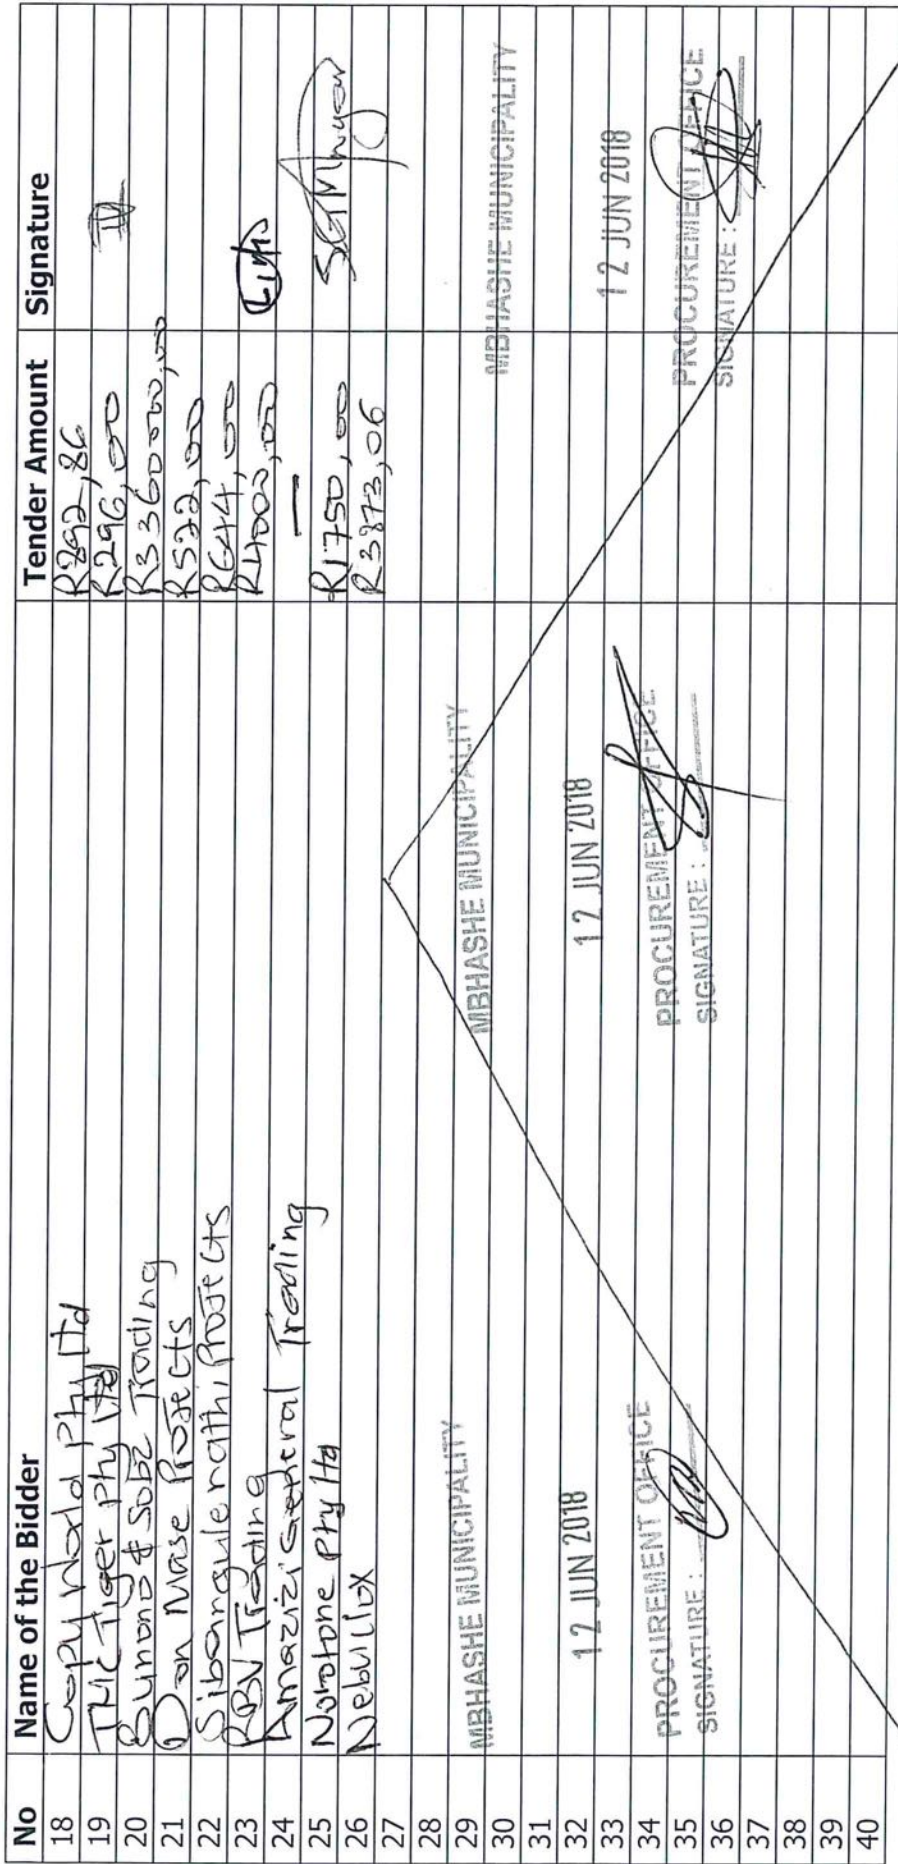 No Name of the Bidder Tender Amount Signature
18 Copy World Pty Ltd R292,86
19 TMC Tiger Pty Ltd R296,00
20 Bumono & Sobz Trading R3 360000,00
21 Don Mase Projects R522,00
22 Sibangulenathi Projects R644,00
23 RBV Trading R4000,00
24 Amazizi General Trading —
25 Notone Pty Ltd R1750,00
26 Nebulox R3873,06
27
28
29
30
31
32
33
34
35
36
37
38
39
40
MBHASHE MUNICIPALITY
12 JUN 2018
PROCUREMENT OFFICE
SIGNATURE :
MBHASHE MUNICIPALITY
12 JUN 2018
PROCUREMENT OFFICE
SIGNATURE :
MBHASHE MUNICIPALITY
12 JUN 2018
PROCUREMENT OFFICE
SIGNATURE :